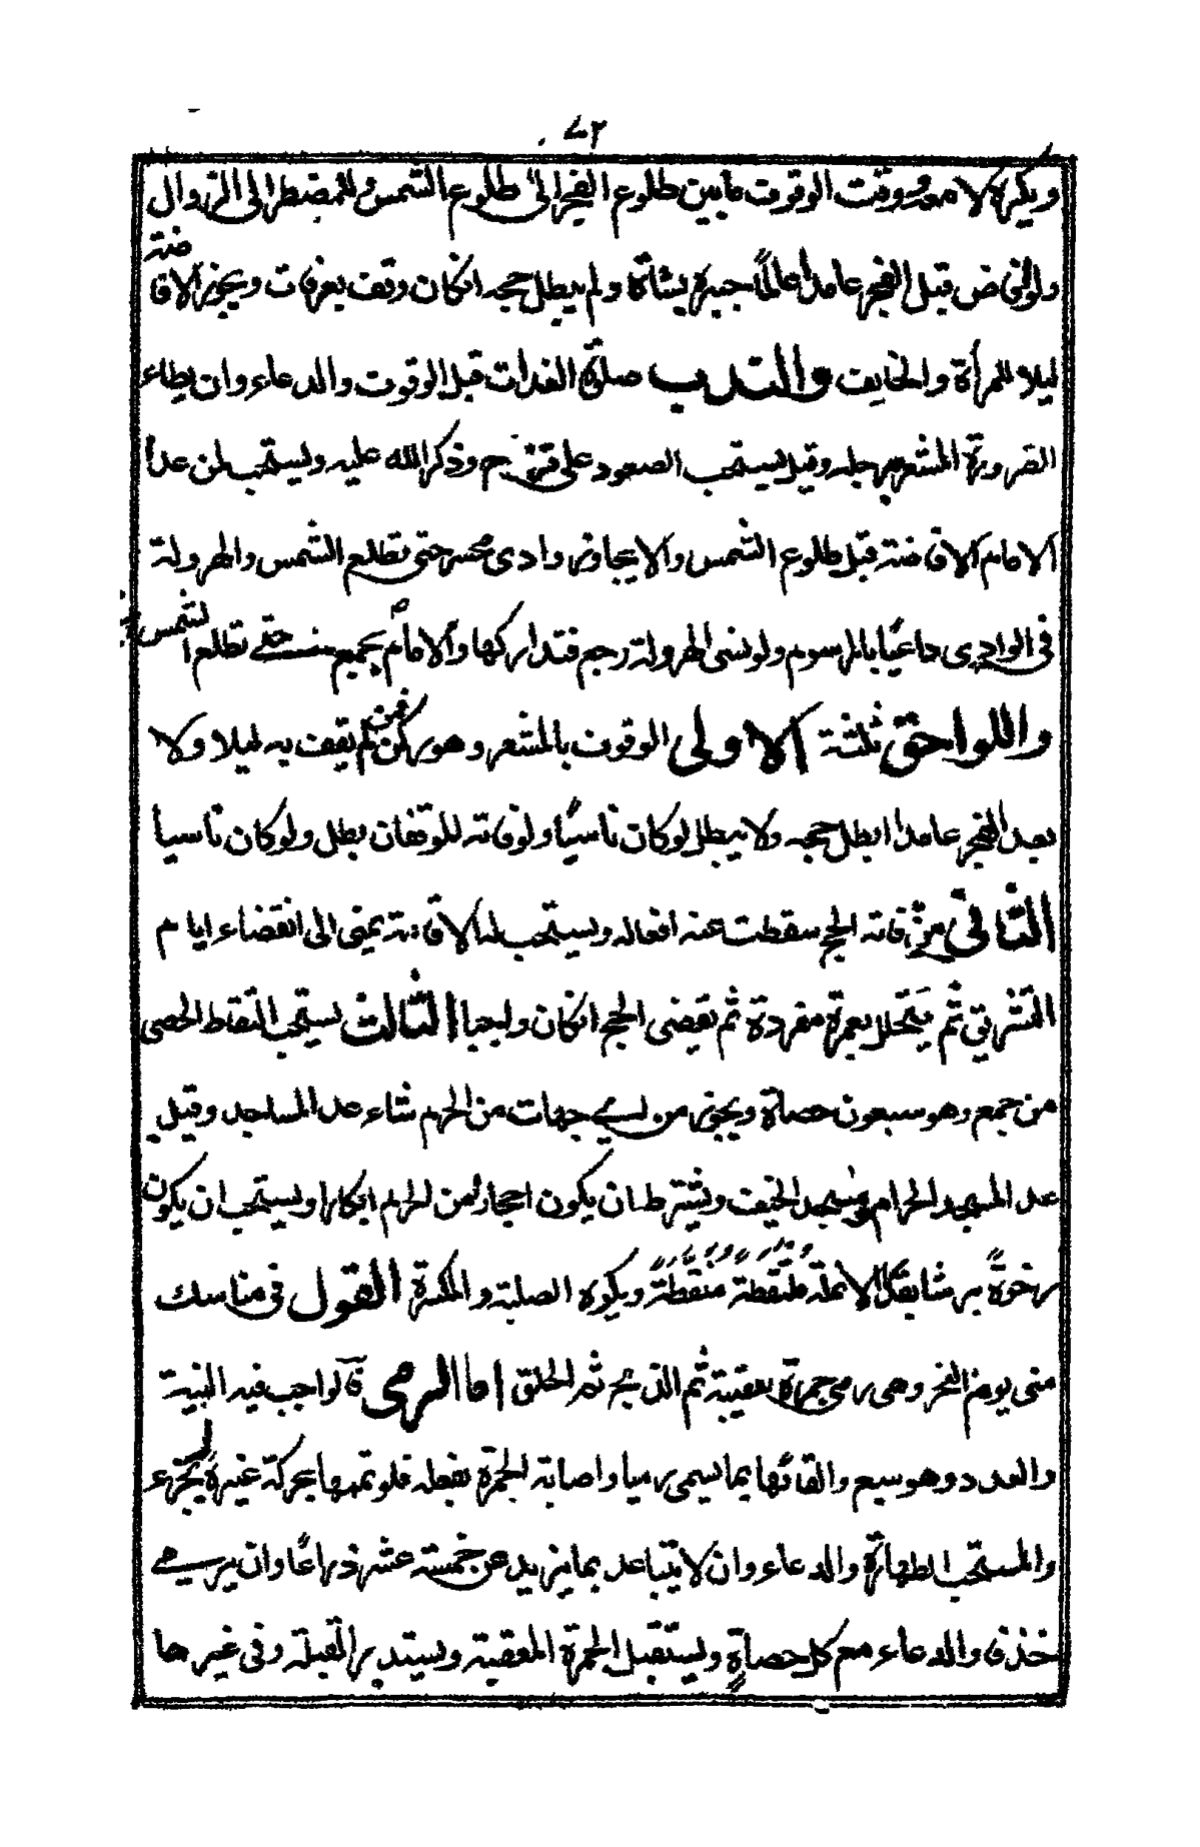 ٧٢
ويكره لا معه ووقت الوقوف مابين طلوع الفجر الى طلوع الشمس وللمضطر الى الزوال
ولو افاض قبل الفجر عامدا عالماً جبره بشاة ولم يبطل حجه انكان وقف بعرفات ويجوز الافاضة
ليلا للمرأة والخايف والندب صلوة الغدات قبل الوقوف والدعاء وان يطاء
الصرورة المشعر برجله وقيل يستحب الصعود على قزح وذكر الله عليه ويستحب لمن عدا
الامام الافاضة قبل طلوع الشمس ولا يجاوز وادى محسر حتى تطلع الشمس والهرولة
فى الوادى داعيًا بالمرسوم ولو نسى الهرولة رجع فتداركها والامام بجمع حتى تطلع الشمس
واللواحق ثلثة الاولى الوقوف بالمشعر وهو ركن فمن لم يقف به ليلا ولا
بعد الفجر عامدا ابطل حجه ولا يبطل لوكان ناسيًا ولو فاته للوقفان بطل ولوكان ناسيا
الثانى من فاته الحج سقطت عنه افعاله ويستحب له الاقامة بمنى الى انقضاء ايام
التشريق ثم يتحلل بعمرة مفردة ثم يقضى الحج انكان واجبا الثالث يستحب التقاط الحصى
من جمع وهو سبعون حصاة ويجوز من اى جهات من الحرم شاء عدا المساجد وقيل
عدا المسجد الحرام ومسجد الخيف ويشترط ان يكون احجارا من الحرم ابكارا ويستحب ان يكون
رخوةً برشا بقدر الانملة ملتقطة منقطةً ويكره الصلبة والمكسرة القول فى مناسك
منى يوم النحر وهى رمى جمرة العقبة ثم الذبح ثم الحلق اما الرمى فالواجب فيه النية
والعدد وهو سبع والقائها بما يسمى رميا واصابة الجمرة بفعله فلو تممها بحركة غيره لم يجزء
والمستحب الطهارة والدعاء وان لا يتباعد بما يزيد عن خمسة عشر ذراعًا وان يرمى
خذفا والدعاء مع كل حصاة ويستقبل الجمرة العقبة ويستدبر القبلة وفى غيرها